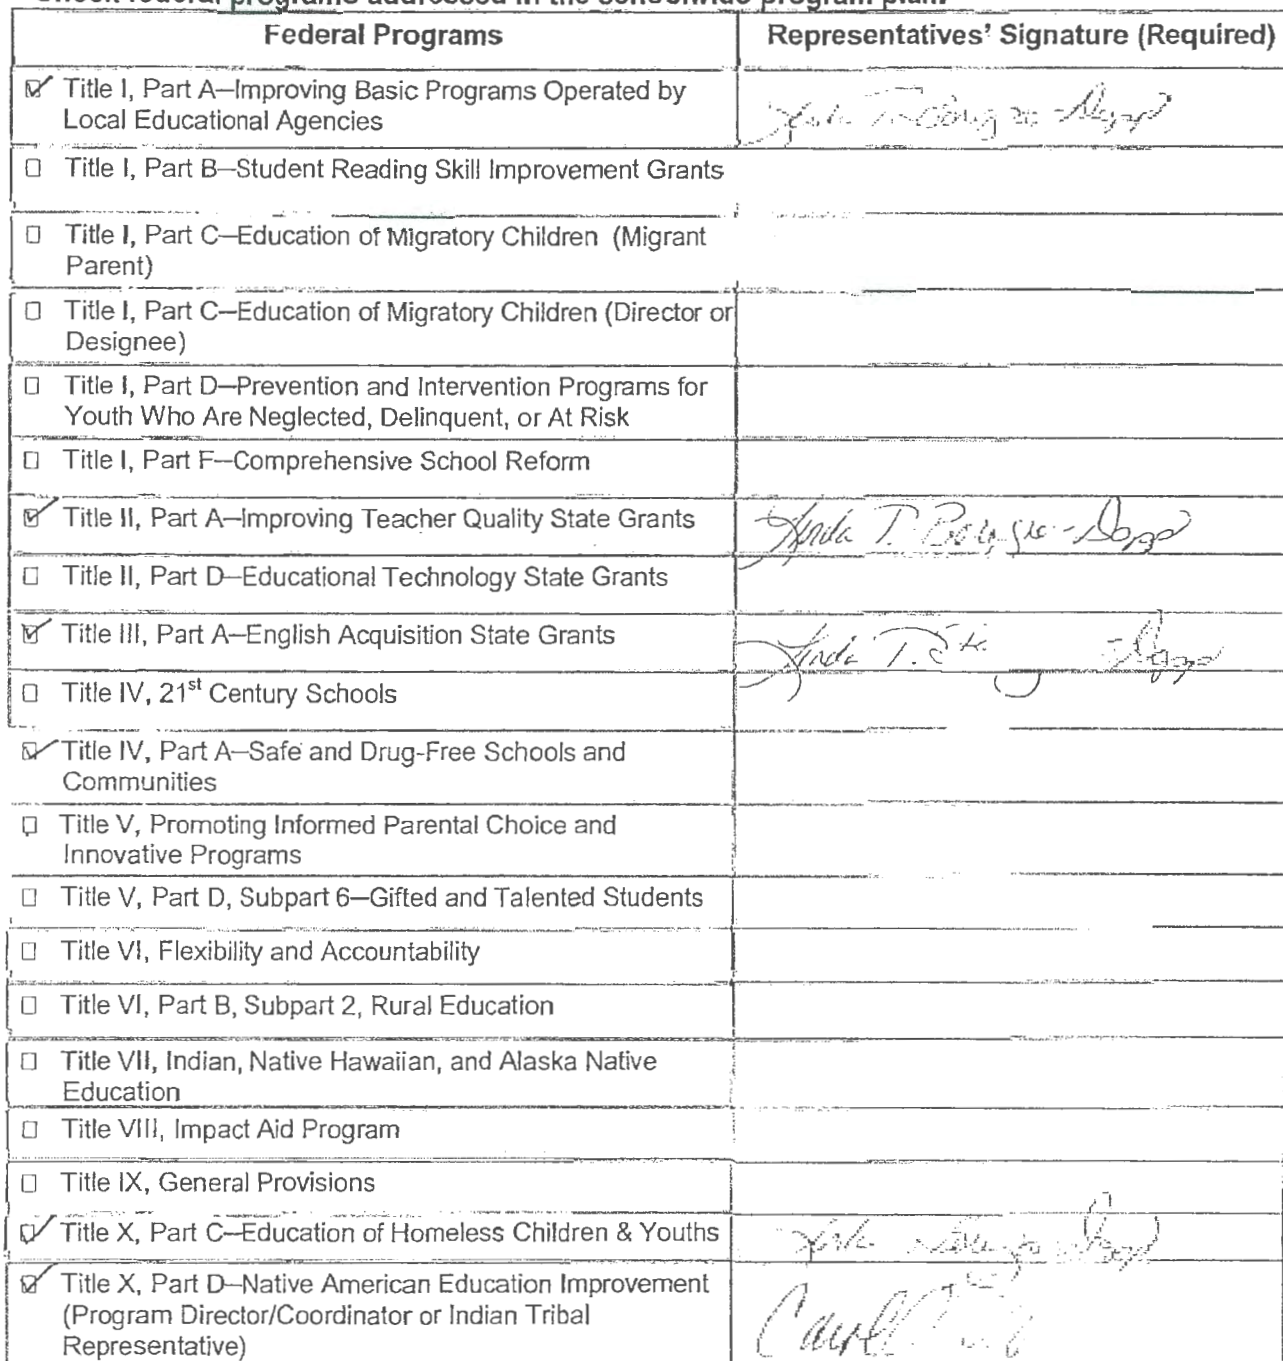 Check federal programs addressed in the schoolwide program plan.
Federal Programs
Representatives' Signature (Required)
Title I, Part A—Improving Basic Programs Operated by
Local Educational Agencies
Title I, Part B—Student Reading Skill Improvement Grants
Title I, Part C—Education of Migratory Children (Migrant
Parent)
Title I, Part C—Education of Migratory Children (Director or
Designee)
Title I, Part D—Prevention and Intervention Programs for
Youth Who Are Neglected, Delinquent, or At Risk
Title I, Part F—Comprehensive School Reform
Title II, Part A—Improving Teacher Quality State Grants
Linda T.
Title II, Part D—Educational Technology State Grants
Title III, Part A—English Acquisition State Grants
Linda T.
Title IV, 21st Century Schools
Title IV, Part A—Safe and Drug-Free Schools and
Communities
Title V, Promoting Informed Parental Choice and
Innovative Programs
Title V, Part D, Subpart 6—Gifted and Talented Students
Title VI, Flexibility and Accountability
Title VI, Part B, Subpart 2, Rural Education
Title VII, Indian, Native Hawaiian, and Alaska Native
Education
Title VIII, Impact Aid Program
Title IX, General Provisions
Title X, Part C—Education of Homeless Children & Youths
Title X, Part D—Native American Education Improvement
(Program Director/Coordinator or Indian Tribal
Representative)